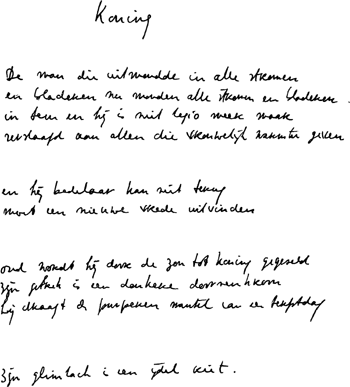 Koning
De man die uitmondde in alle stromen
en bladeren nu monden alle stromen en bladeren
in hem en hij is niet legio meer maar
verslaafd aan allen die vrouwelijk warmte geven
en hij bedelaar kan niet terug
moet een nieuwe vrede uitvinden
oud wordt hij door de zon tot koning gegeseld
zijn gebrek is een donkere doornenkroon
hij draagt de purperen mantel van een
zijn glimlach is een ijdel niet.